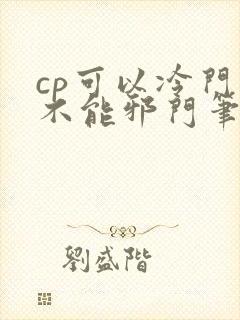 cp可以冷門
不能邪門筆
劉盛階